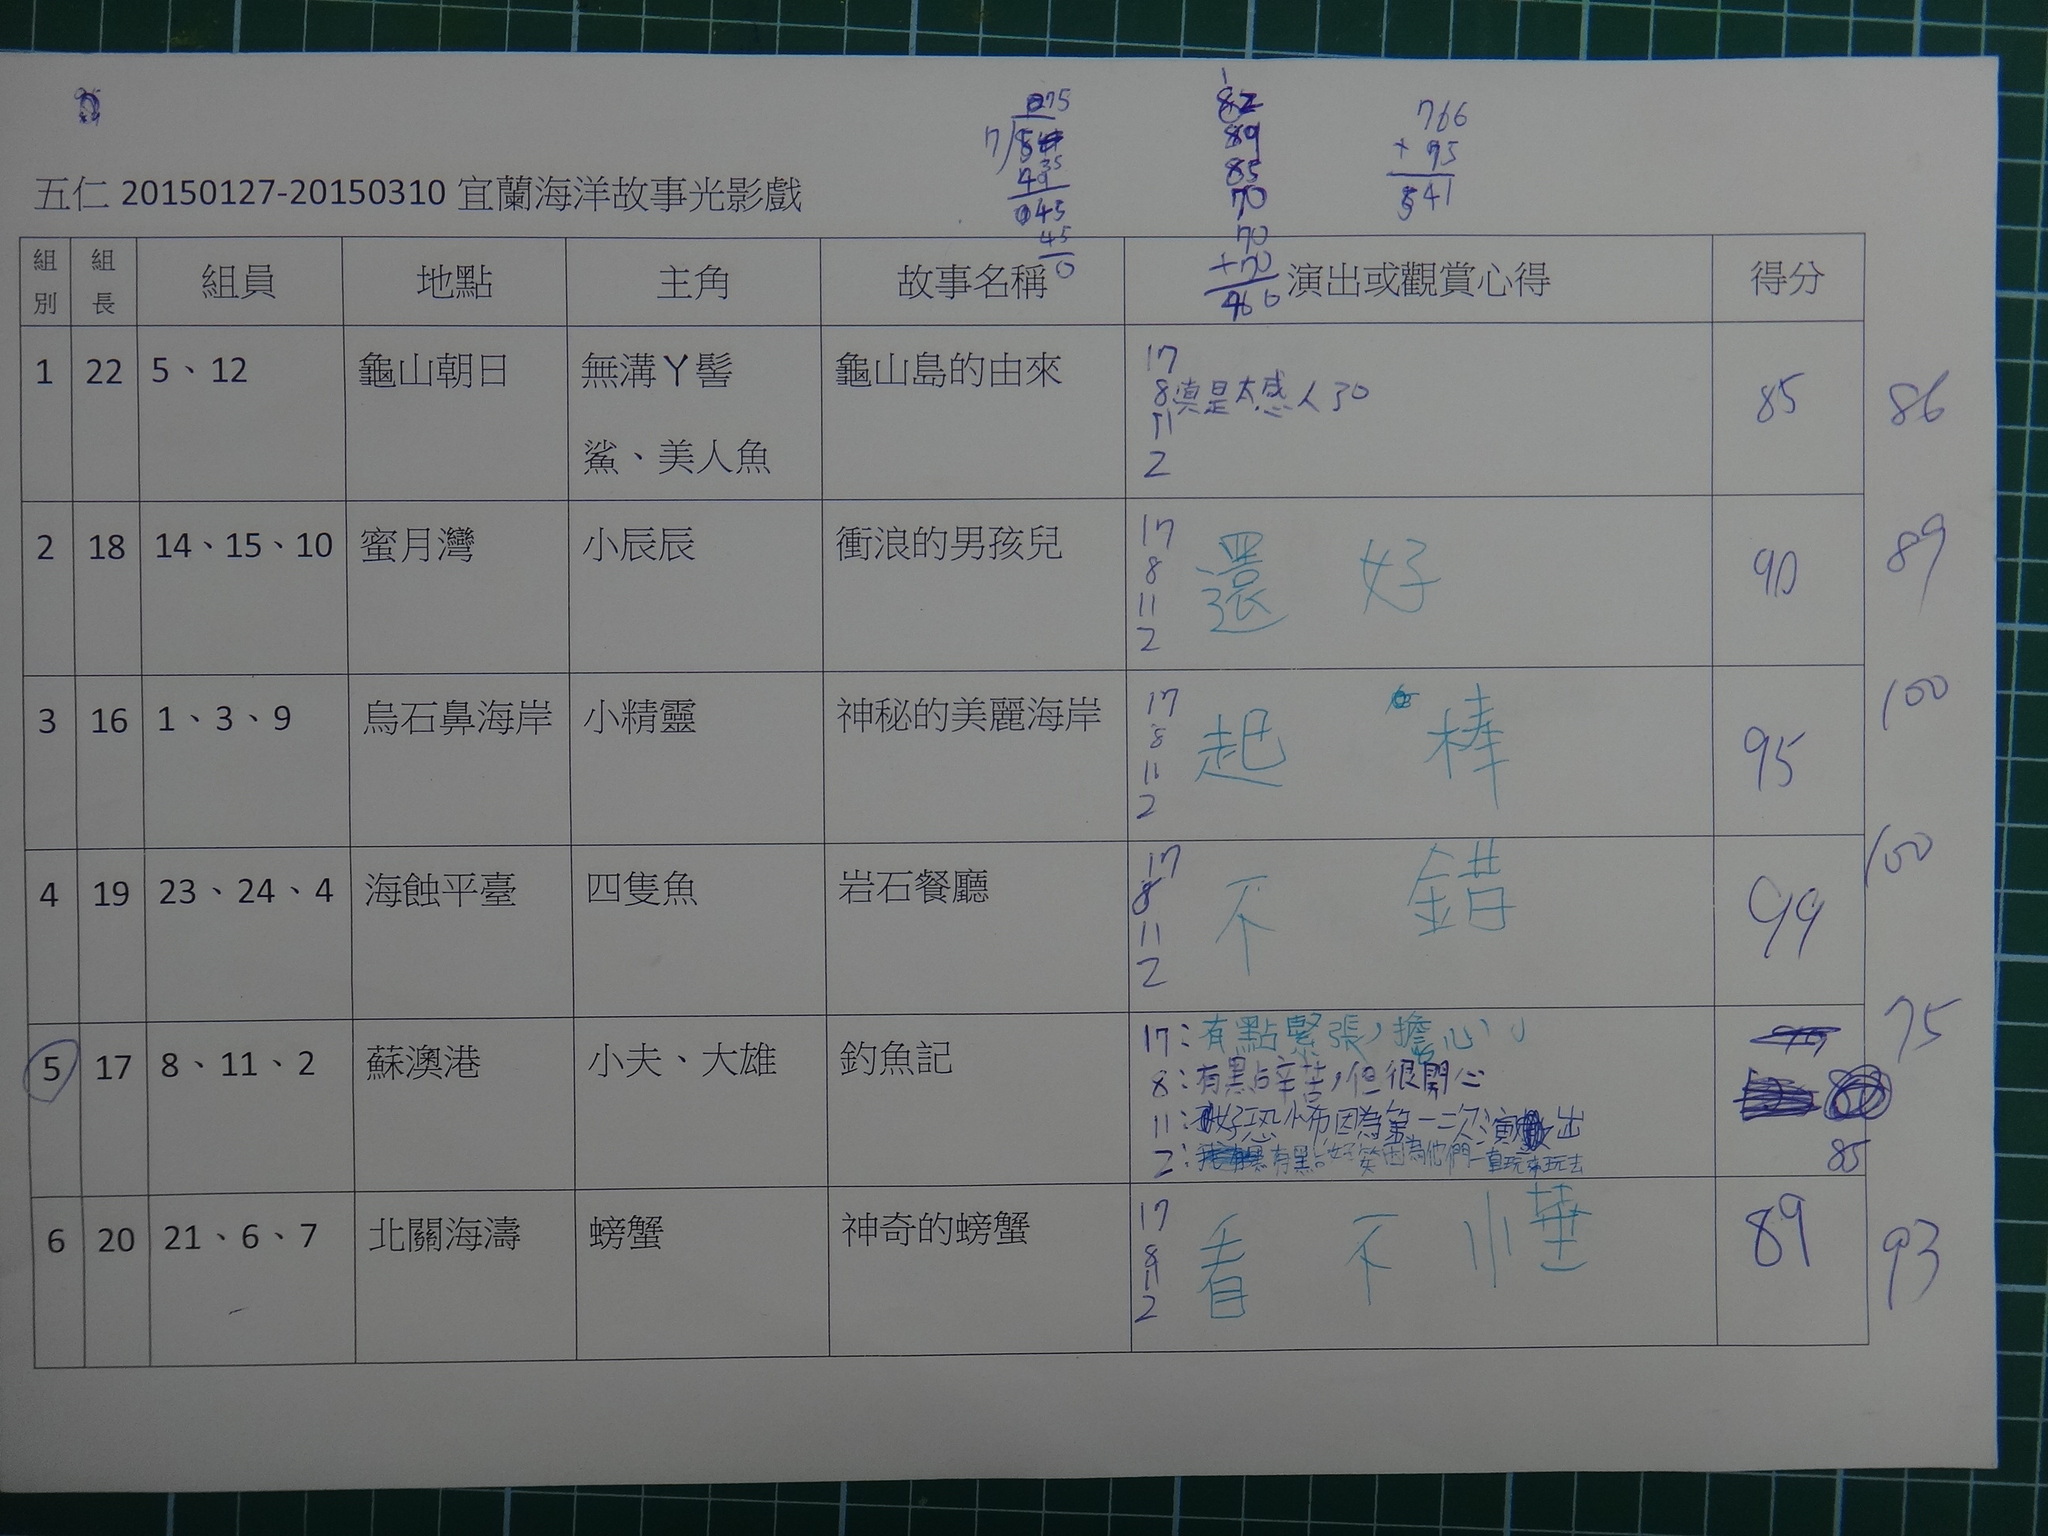 75
7
49
45
45
0
82
89
85
70
70
+70
460
766
+ 95
541
五仁 20150127-20150310 宜蘭海洋故事光影戲
組別 組長 組員 地點 主角 故事名稱 演出或觀賞心得 得分
1 22 5、12 龜山朝日 無溝丫髻鯊、美人魚 龜山島的由來
17
8 真是太感人了
11
2
85 86
2 18 14、15、10 蜜月灣 小辰辰 衝浪的男孩兒
17
8
11
2
還好
90 89
3 16 1、3、9 烏石鼻海岸 小精靈 神秘的美麗海岸
17
8
11
2
起棒
95 100
4 19 23、24、4 海蝕平臺 四隻魚 岩石餐廳
17
8
11
2
不錯
99 100
5 17 8、11、2 蘇澳港 小夫、大雄 釣魚記
17:有點緊張,擔心
8:有點辛苦,但很開心
11:好恐怖因為第一次演出
2:有點好笑因為他們一直玩來玩去
85 75
6 20 21、6、7 北關海濤 螃蟹 神奇的螃蟹
17
8
11
2
看不
89 93